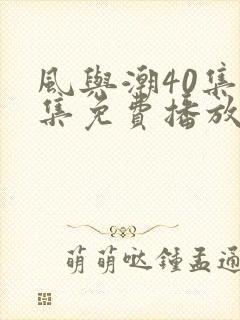 風與潮40集
集免費播放
萌萌哒鍾孟通